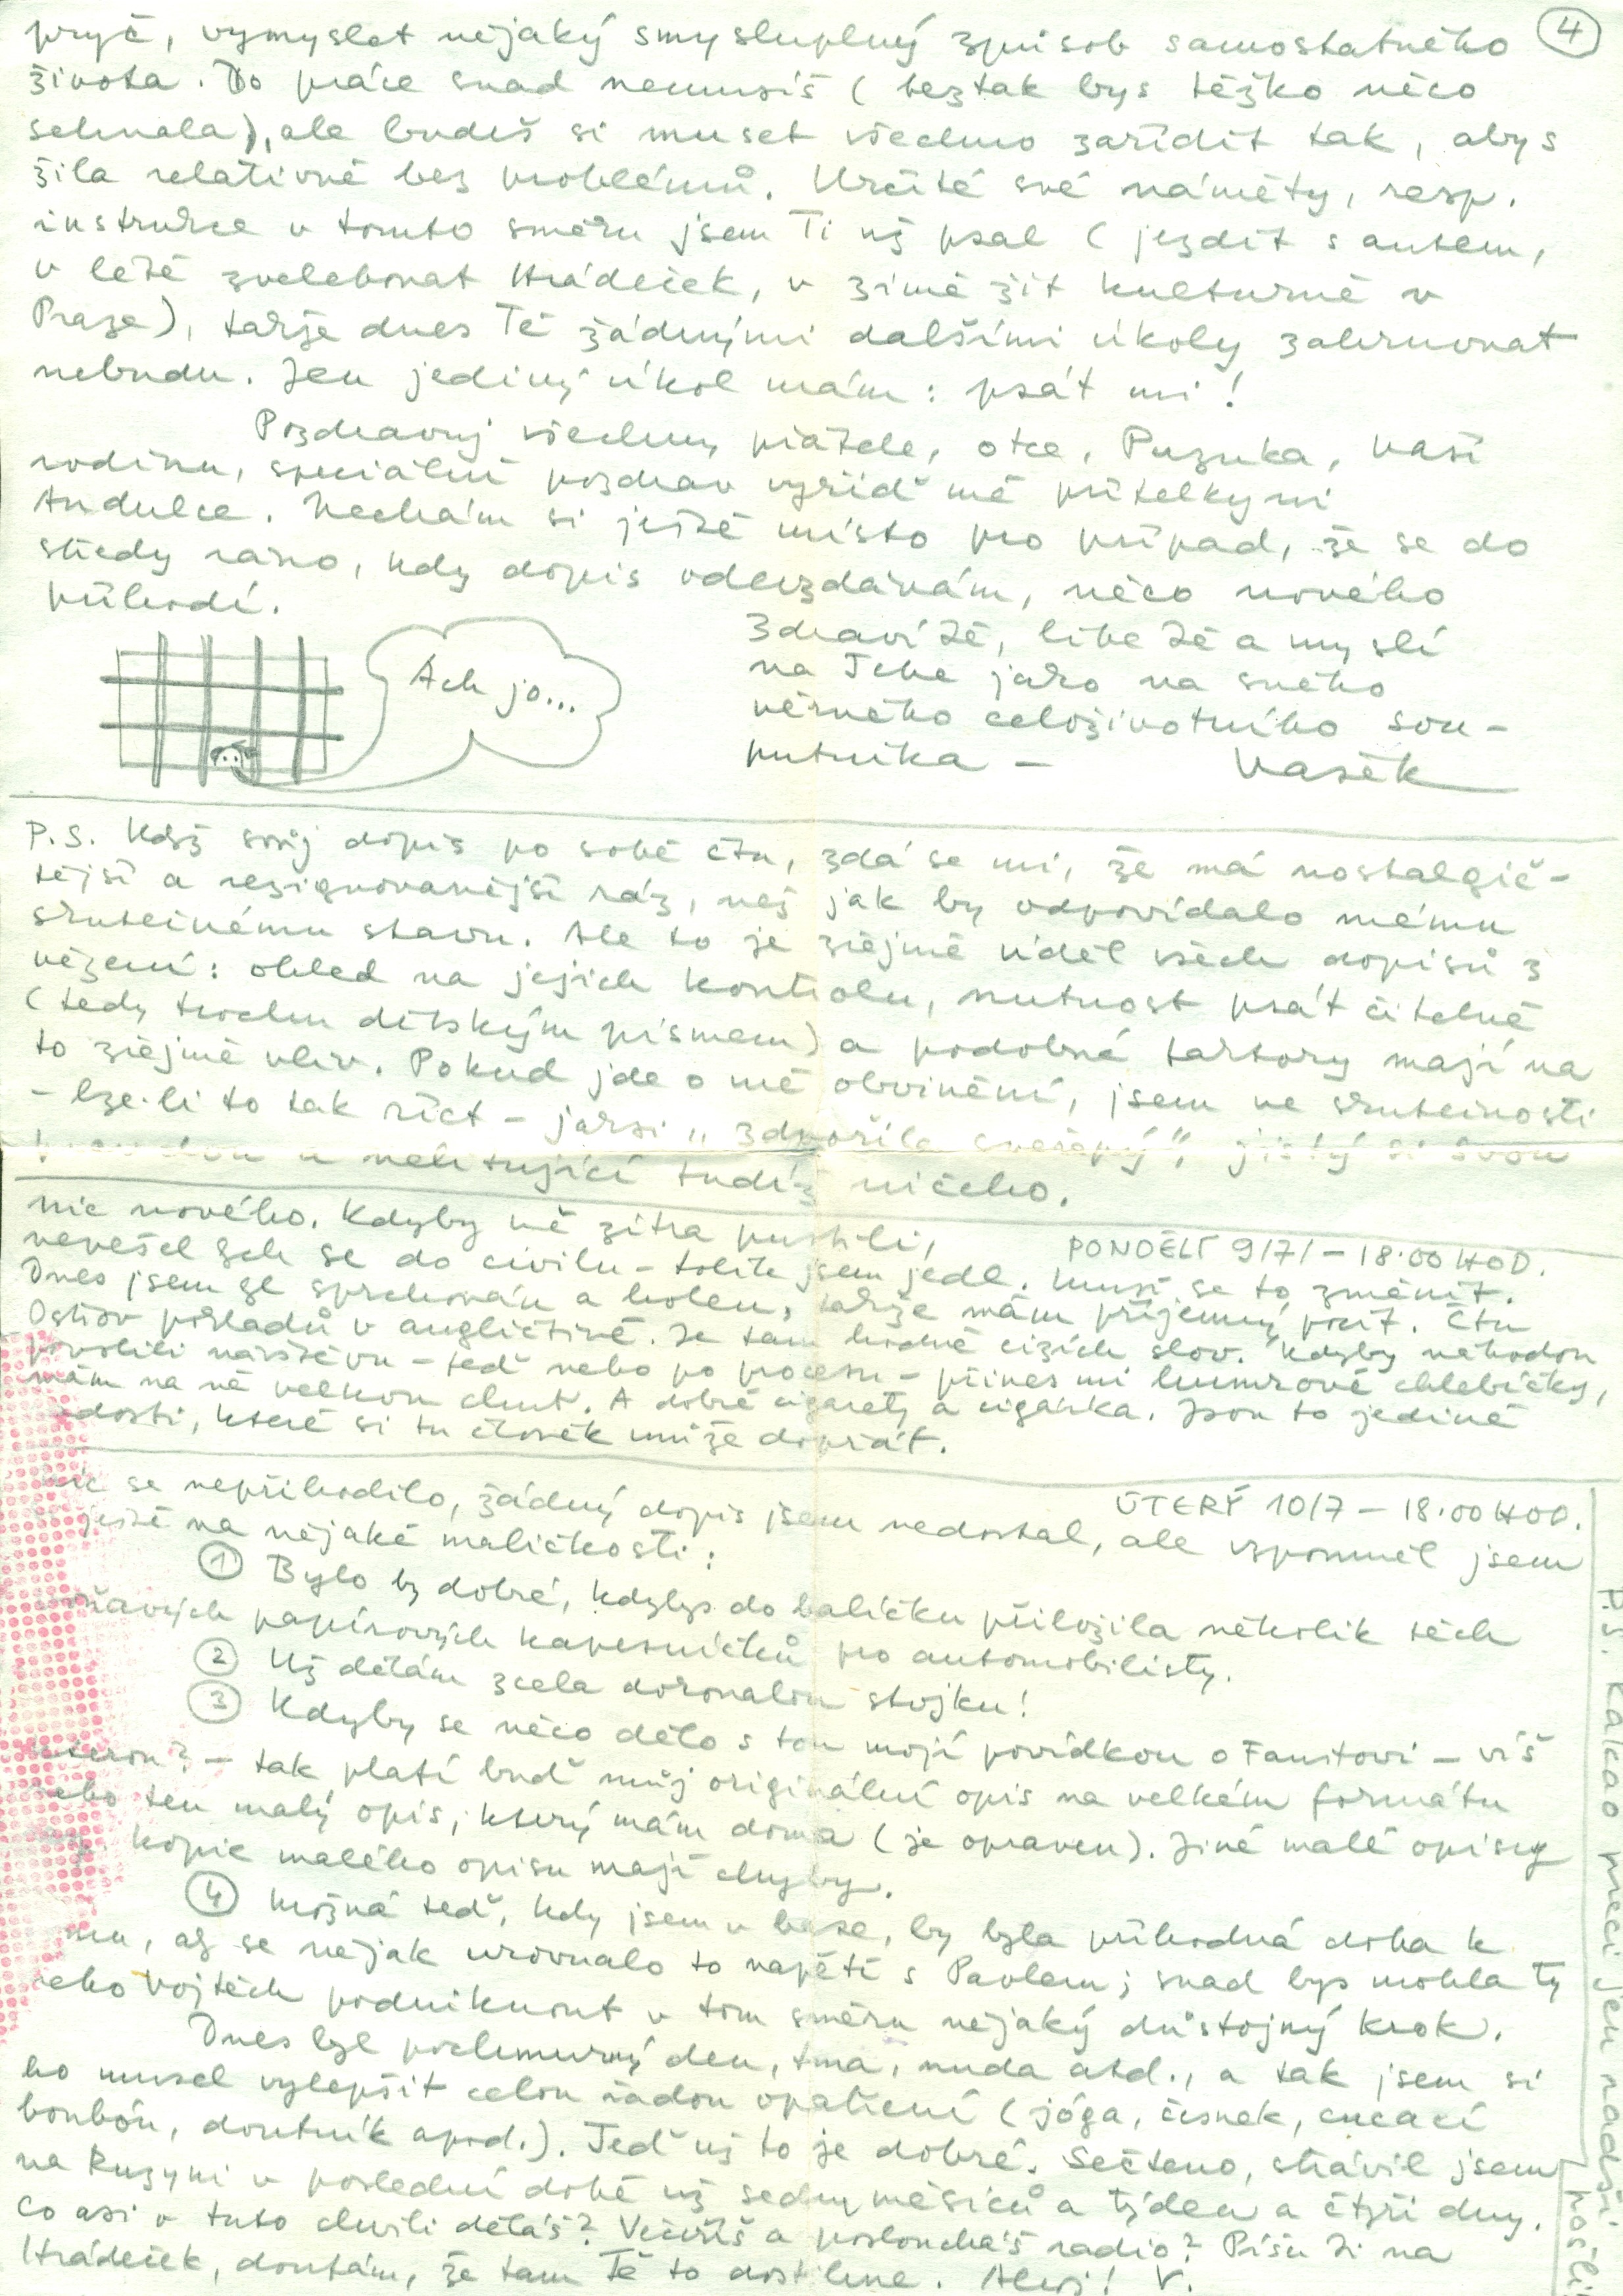 4
pryč, vymyslet nějaký smysluplný způsob samostatného
života. Do práce snad nemusíš (beztak bys těžko něco
sehnala), ale budeš si muset všechno zařídit tak, abys
žila relativně bez problémů. Určité své náměty, resp.
instrukce v tomto směru jsem Ti už psal (jezdit s autem,
v létě zvelebovat Hrádeček, v zimě žít kulturně v
Praze), takže dnes Tě žádnými dalšími úkoly zahrnovat
nebudu. Jen jediný úkol mám: psát mi!
Pozdravuj všechny přátele, otce, Puzuka, Vaší
rodinu, speciální pozdrav vyřiď mé přítelkyni
Andulce. Nechám si ještě místo pro případ, že se do
středy ráno, kdy dopis odevzdávám, něco nového
přihodí.
Ach jo...
Zdraví Tě, líbe Tě a myslí
na Tebe jako na svého
věrného celoživotního sou-
putníka -
Vašek
P.S. Když svůj dopis po sobě čtu, zdá se mi, že má nostalgič-
tější a rezignovanější ráz, než jak by odpovídalo mému
skutečnému stavu. Ale to je zřejmě úděl všech dopisů z
vězení: ohled na jejich kontrolu, nutnost psát čitelně
(tedy trochu dětským písmem) a podobné faktory mají na
to zřejmě vliv. Pokud jde o mé obvinění, jsem ve skutečnosti
- lze-li to tak říct - jaksi „zdvořile svéhlavý", jistý si svou
a nelitující tudíž ničeho.
PONDĚLÍ 9/7/ - 18.00 HOD.
Nic nového. Kdyby mě zítra pustili,
nevešel bych se do civilu - tolik jsem jedl. Musí se to změnit.
Dnes jsem se sprchován a holen, takže mám příjemný pocit. Čtu
Ostrov pokladů v angličtině. Je tam hodně cizích slov. Kdyby náhodou
povolili návštěvu - teď nebo po procesu - přines mi humrové chlebíčky,
mám na ně velkou chuť. A dobré cigarety a cigárka. Jsou to jediné
radosti, které si tu člověk může dopřát.
ÚTERÝ 10/7 - 18.00 HOD.
Nic se nepřihodilo, žádný dopis jsem nedostal, ale vzpomněl jsem
si ještě na nějaké maličkosti:
1 Bylo by dobré, kdybys do balíčku přiložila několik těch
voňavých papírových kapesníčků pro automobilisty.
2 Už dělám zcela dokonalou stojku!
3 Kdyby se něco dělo s tou mojí povídkou o Faustovi - víš
kterou? - tak platí buď můj originální opis na velkém formátu
nebo ten malý opis, který mám doma (je opraven). Jiné malé opisy
kopie malého opisu mají chyby.
4 Možná teď, kdy jsem v base, by byla příhodná doba k
mu, aby se nějak urovnalo to napětí s Pavlem; snad bys mohla Ty
nebo Vojtěch podniknout v tom směru nějaký důstojný krok.
Dnes byl pochmurný den, tma, nuda atd., a tak jsem si
ho musel vylepšit celou řadou opatření (jóga, česnek, cucací
bonbón, doutník apod.). Teď už to je dobré. Sečteno, strávil jsem
na Ruzyni v poslední době už sedm měsíců a týden a čtyři dny.
Co asi v tuto chvíli děláš? Večeříš a posloucháš radio? Píšu Ti na
Hrádeček, doufám, že tam Tě to dostihne. Ahoj! V.
P.S. Kakao přeci jen raději pošli